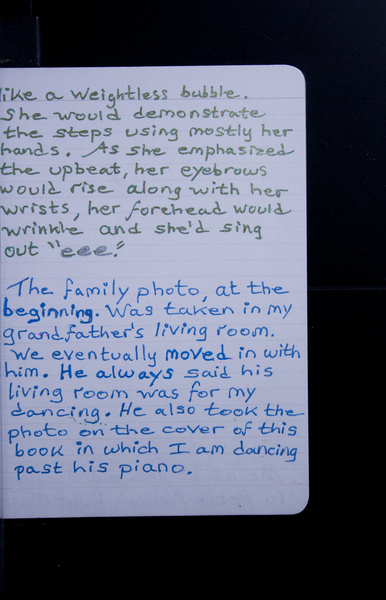 like a weightless bubble.
She would demonstrate
the steps using mostly her
hands. As she emphasized
the upbeat, her eyebrows
would rise along with her
wrists, her forehead would
wrinkle and she'd sing
out "eee."
The family photo, at the
beginning. Was taken in my
grandfather's living room.
We eventually moved in with
him. He always said his
living room was for my
dancing. He also took the
photo on the cover of this
book in which I am dancing
past his piano.